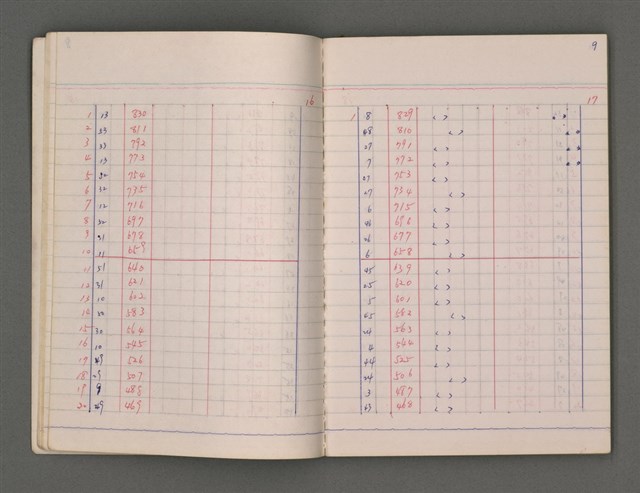 16
1 13 830
2 811
3 792
4 13 773
5 754
6 32 735
7 12 716
8 697
9 678
10 659
11 51 640
12 31 621
13 10 602
14 583
15 30 564
16 10 545
526
18 507
9 488
20 49 469
9
17
1 8 829 < >
48 810 < >
27 791 < >
7 772 < >
27 753 < >
27 734 < >
6 715 < >
696 < >
677 < >
6 658 < >
45 639 < >
25 620 < >
5 601 < >
45 582 < >
24 563 < >
4 544 < >
44 525 < >
24 506 < >
3 487 < >
43 468 < >